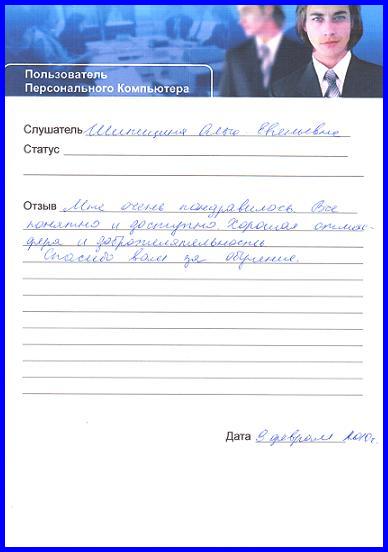 Пользователь
Персонального Компьютера
Слушатель Шипицина Ольга Евгеньевна
Статус
Отзыв Мне очень пондравилось. Все
понятно и доступно. Хорошая атмос-
фера и доброжелятельность
Спасибо вам за обучение.
Дата 9 февраля 2010г.